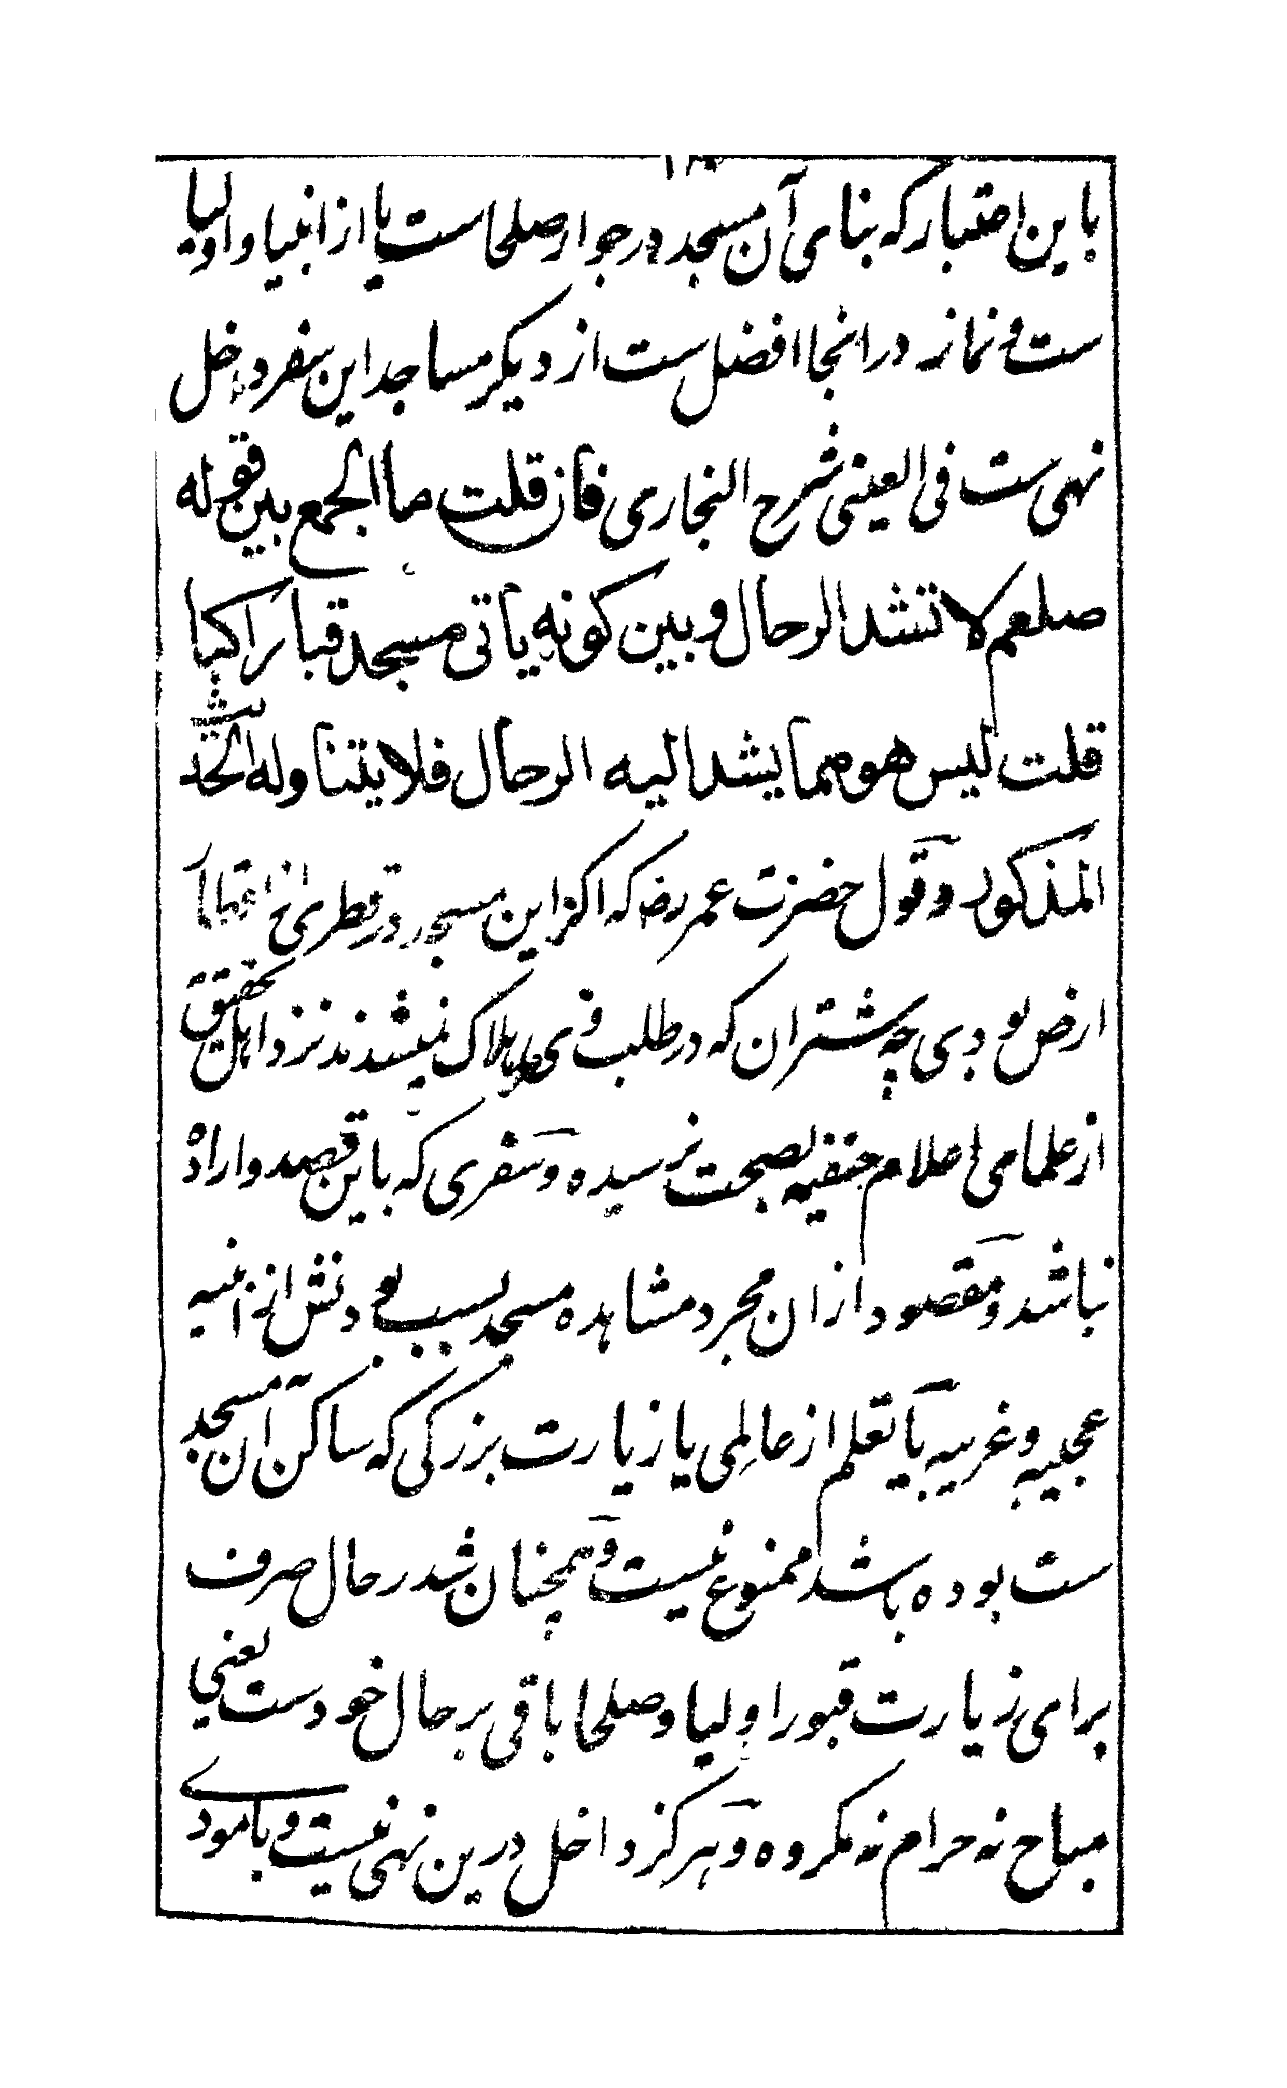 باین اعتبار که بنای آن مسجد در جوار صلحاست یا از انبیا و اولیا
ست و نماز در اینجا افضل ست از دیگر مساجد این سفر داخل
نهی ست فی العینی شرح البخاری فان قلت ما الجمع بین قوله
صلعم لا تشد الرحال و بین کونه یاتی مسجد قبا راکبا
قلت لیس هو مما یشد الیه الرحال فلا یتناوله الحدیث
المذکور و قول حضرت عمر رضه که اگر این مسجد در قطری از اقطار
ارض بودی چه شتران که در طلب وی هلاک نمیشدند نزد اهل تحقیق
از علمای اعلام حنفیه بصحت نرسیده و سفری که باین قصد و اراده
نباشد و مقصود ازان مجرد مشاهده مسجد بسبب بودنش از ابنیه
عجیبه و غریبه یا تعلم از عالمی یا زیارت بزرگی که ساکن آن مسجد
ست بوده باشد ممنوع نیست و همچنان شد رحال صرف
برای زیارت قبور اولیا و صلحا باقی بر حال خودست یعنی
مباح نه حرام نه مکروه و هرگز داخل درین نهی نیست و با مودی